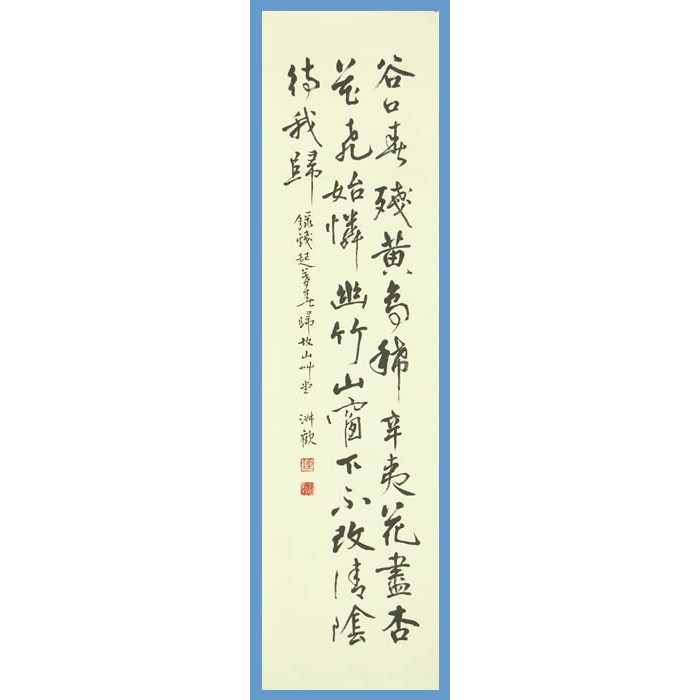 谷口春殘黃鳥稀辛夷花盡杏
花飛始憐幽竹山窗下不改清陰
待我歸
錄錢起暮春歸故山艸堂 淋歡